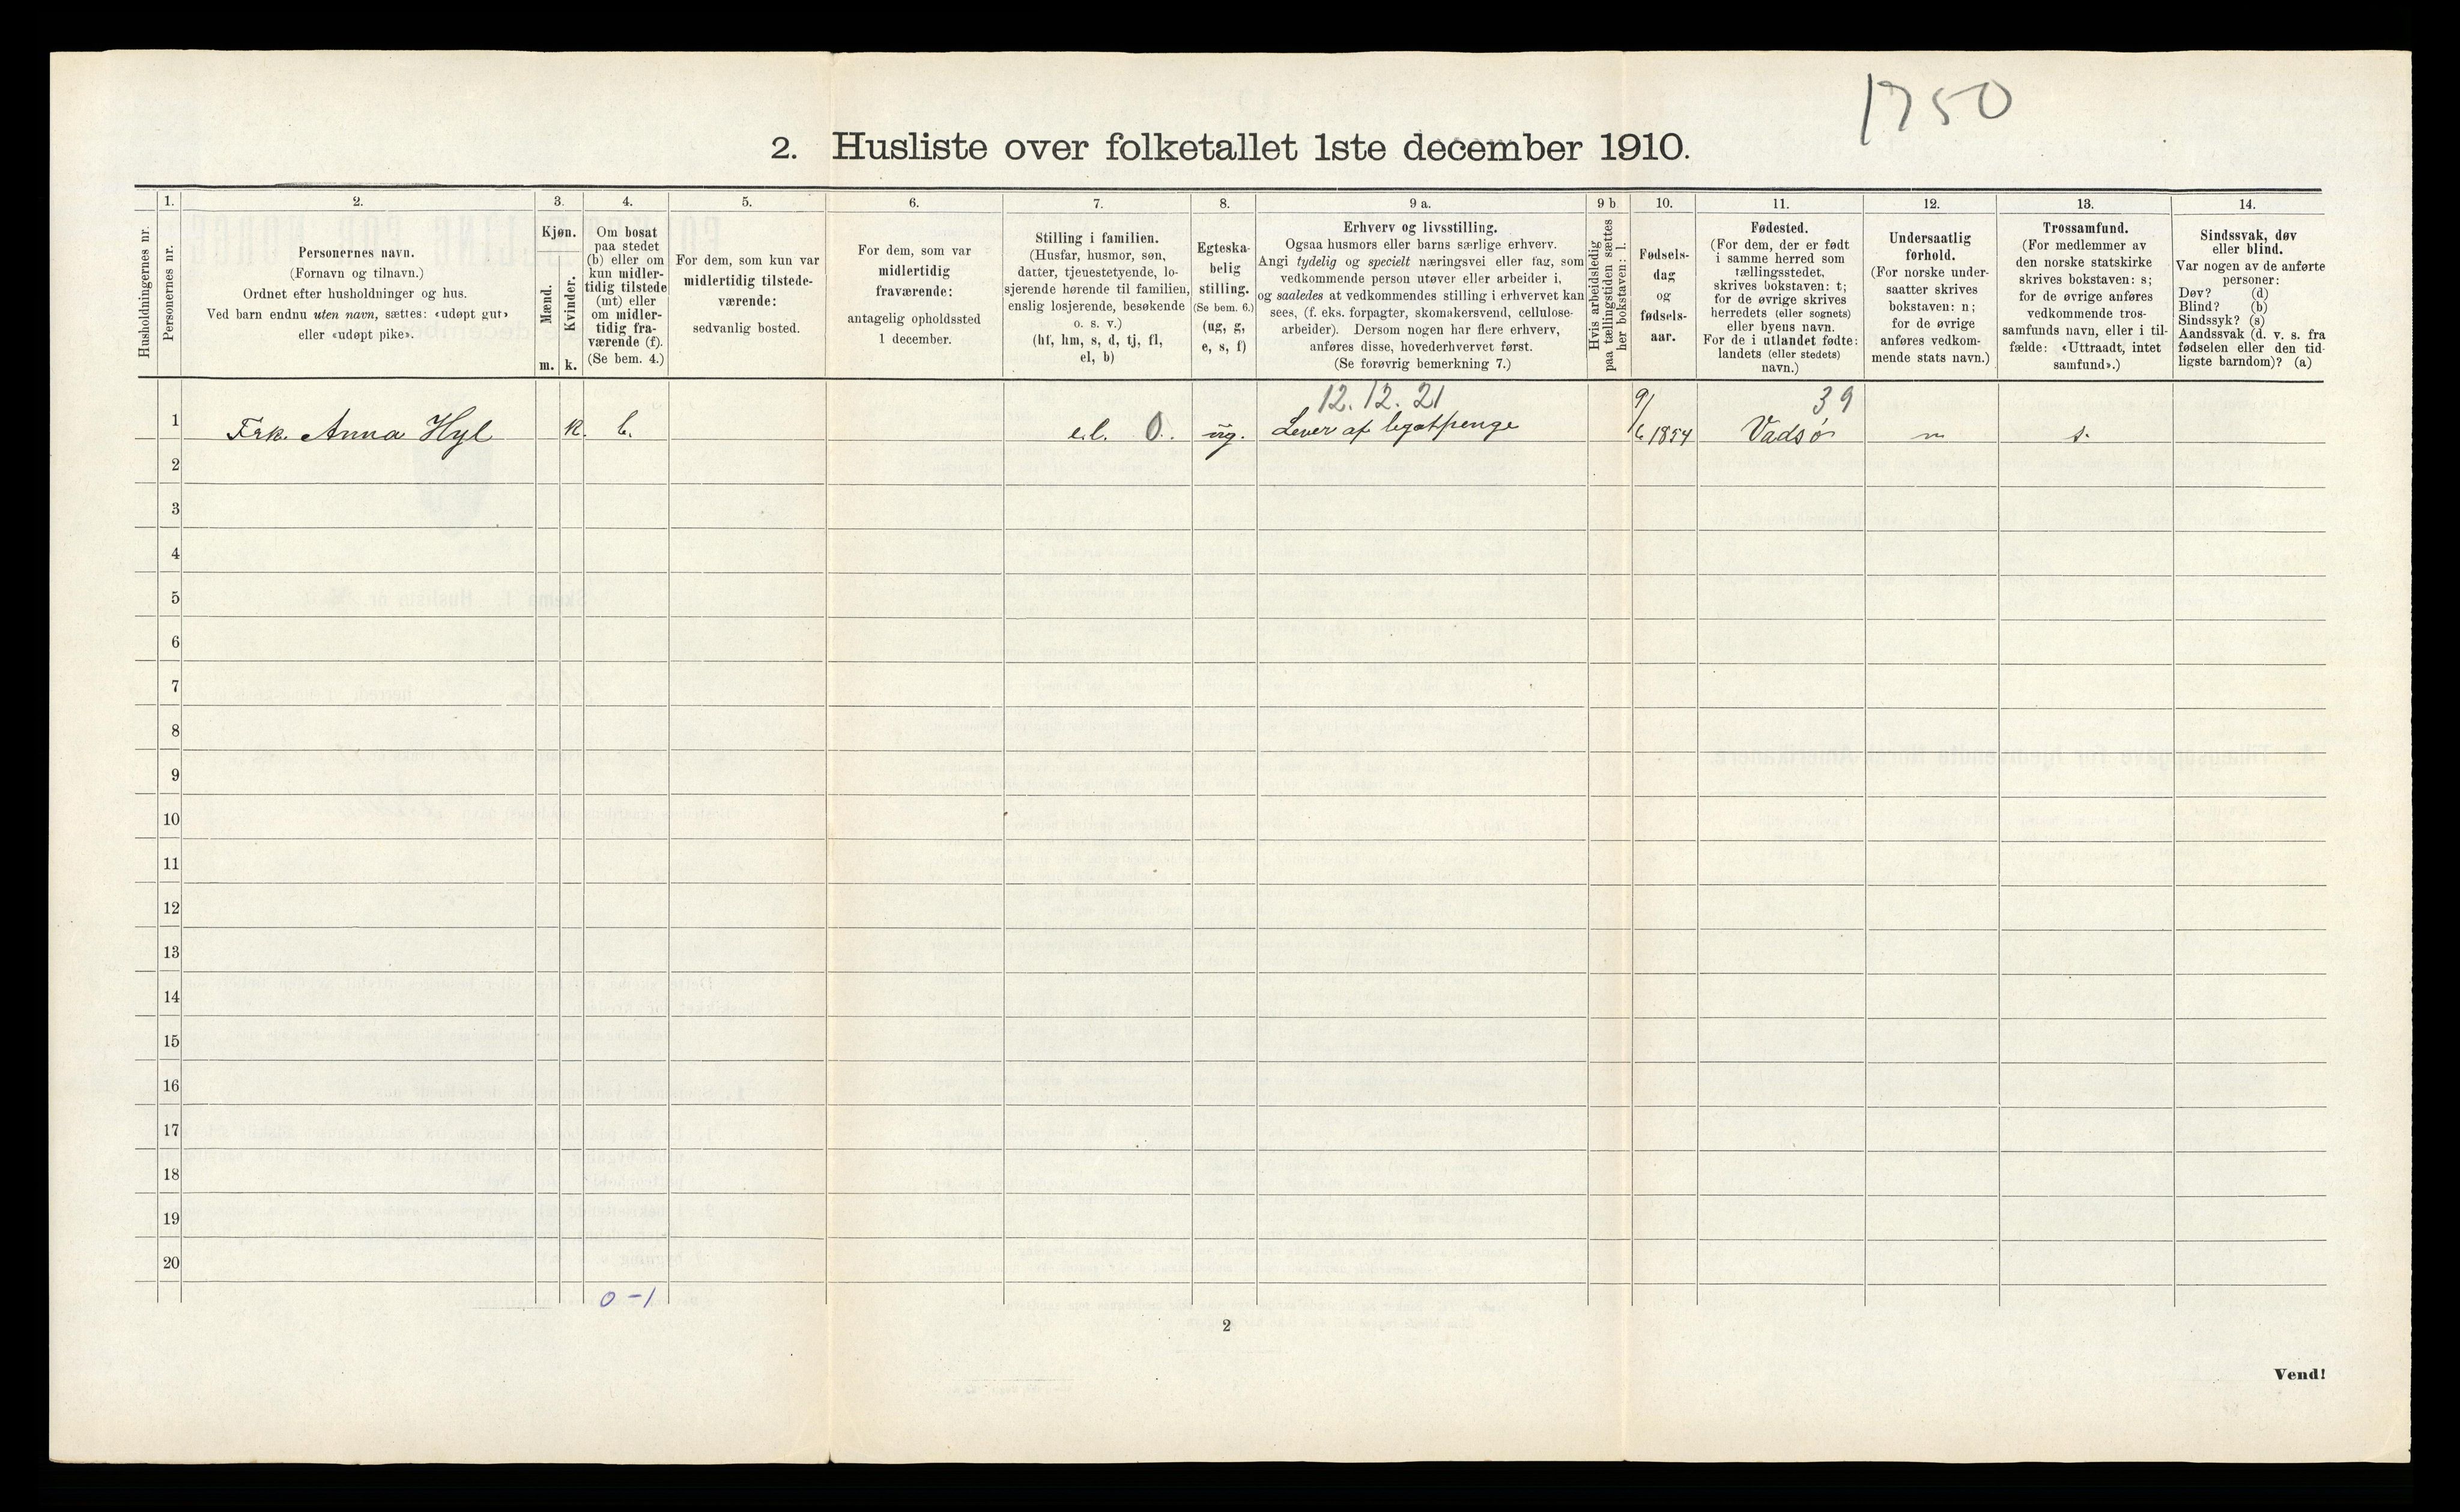 1750
2. Husliste over folketallet 1ste december 1910.
Husholdningernes nr.
1.
Personernes nr.
2.
Personernes navn.
(Fornavn og tilnavn.)
Ordnet efter husholdninger og hus.
Ved barn endnu uten navn, sættes: «udøpt gut»
eller «udøpt pike».
3.
Kjøn.
Mænd.
Kvinder.
m.
k.
4.
Om bosat
paa stedet
(b) eller om
kun midler-
tidig tilstede
(mt) eller
om midler-
tidig fra-
værende (f).
(Se bem. 4.)
5.
For dem, som kun var
midlertidig tilstede-
værende:
sedvanlig bosted.
6.
For dem, som var
midlertidig
fraværende:
antagelig opholdssted
1 december.
7.
Stilling i familien.
(Husfar, husmor, søn,
datter, tjenestetyende, lo-
sjerende hørende til familien,
enslig losjerende, besøkende
o. s. v.)
(hf, hm, s, d, tj, fl,
el, b)
8.
Egteska-
belig
stilling.
(Se bem. 6.)
(ug, g,
e, s, f)
9 a.
Erhverv og livsstilling.
Ogsaa husmors eller barns særlige erhverv.
Angi tydelig og specielt næringsvei eller fag, som
vedkommende person utøver eller arbeider i,
og saaledes at vedkommendes stilling i erhvervet kan
sees, (f. eks. forpagter, skomakersvend, cellulose-
arbeider). Dersom nogen har flere erhverv,
anføres disse, hovederhvervet først.
(Se forøvrig bemerkning 7.)
9 b
Hvis arbeidsledig
paa tællingstiden sættes
her bokstaven: l.
10.
Fødsels-
dag
og
fødsels-
aar.
11.
Fødested.
(For dem, der er født
i samme herred som
tællingsstedet,
skrives bokstaven: t;
for de øvrige skrives
herredets (eller sognets)
eller byens navn.
For de i utlandet fødte:
landets (eller stedets)
navn.)
12.
Undersaatlig
forhold.
(For norske under-
saatter skrives
bokstaven: n;
for de øvrige
anføres vedkom-
mende stats navn.)
13.
Trossamfund.
(For medlemmer av
den norske statskirke
skrives bokstaven: s;
for de øvrige anføres
vedkommende tros-
samfunds navn, eller i til-
fælde: «Uttraadt, intet
samfund».)
14.
Sindssvak, døv
eller blind.
Var nogen av de anførte
personer:
Døv? (d)
Blind? (b)
Sindssyk? (s)
Aandssvak (d. v. s. fra
fødselen eller den tid-
ligste barndom)? (a)
12.12.21 39
1 Frk. Anna Hyl k. b. e.l. 0. ug. Lever af legatpenge 9/6 1854 Vadsø n s.
2
3
4
5
6
7
8
9
10
11
12
13
14
15
16
17
18
19
20
0-1
2
Vend!